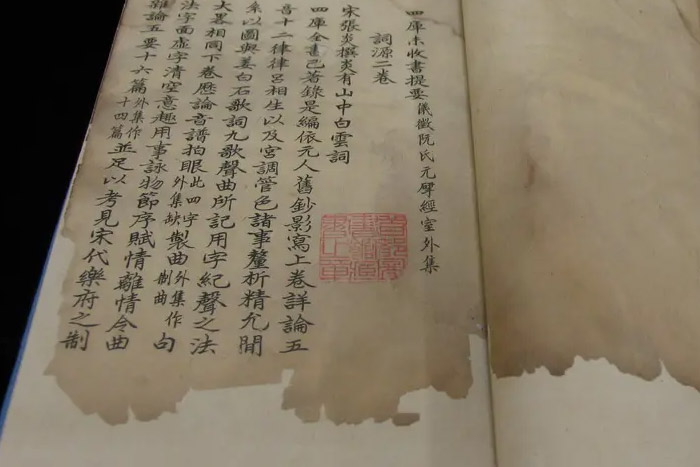 四庫未收書提要 儀徵阮氏元揅經室外集
詞源二卷
宋張炎撰炎有山中白雲詞
四庫全書已著錄是編依元人舊鈔影寫上卷詳論五
音十二律律呂相生以及宮調管色諸事釐析精允間
系以圖與姜白石歌詞九歌聲曲所記用字紀聲之法
大畧相同下卷歷論音譜拍眼此四字外集缺製曲外集作制曲句
法字面虛字清空意趣用事詠物節序賦情離情令曲
雜論五要十六篇外集作十四篇並足以考見宋代樂府之制